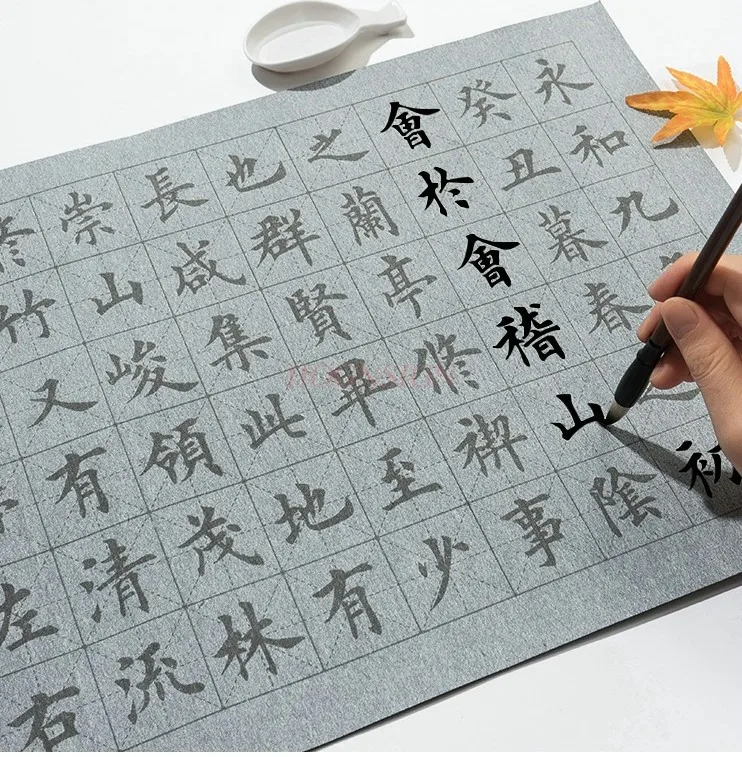 永和九
癸丑暮春之初
會於會稽山陰
之蘭亭修禊事
也群賢畢至少
長咸集此地有
崇山峻領茂林
修竹又有清流
左右